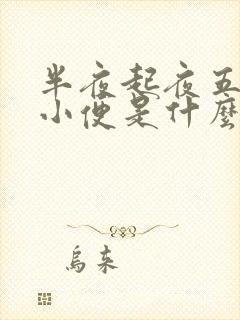 半夜起夜五
小便是什麼
烏来